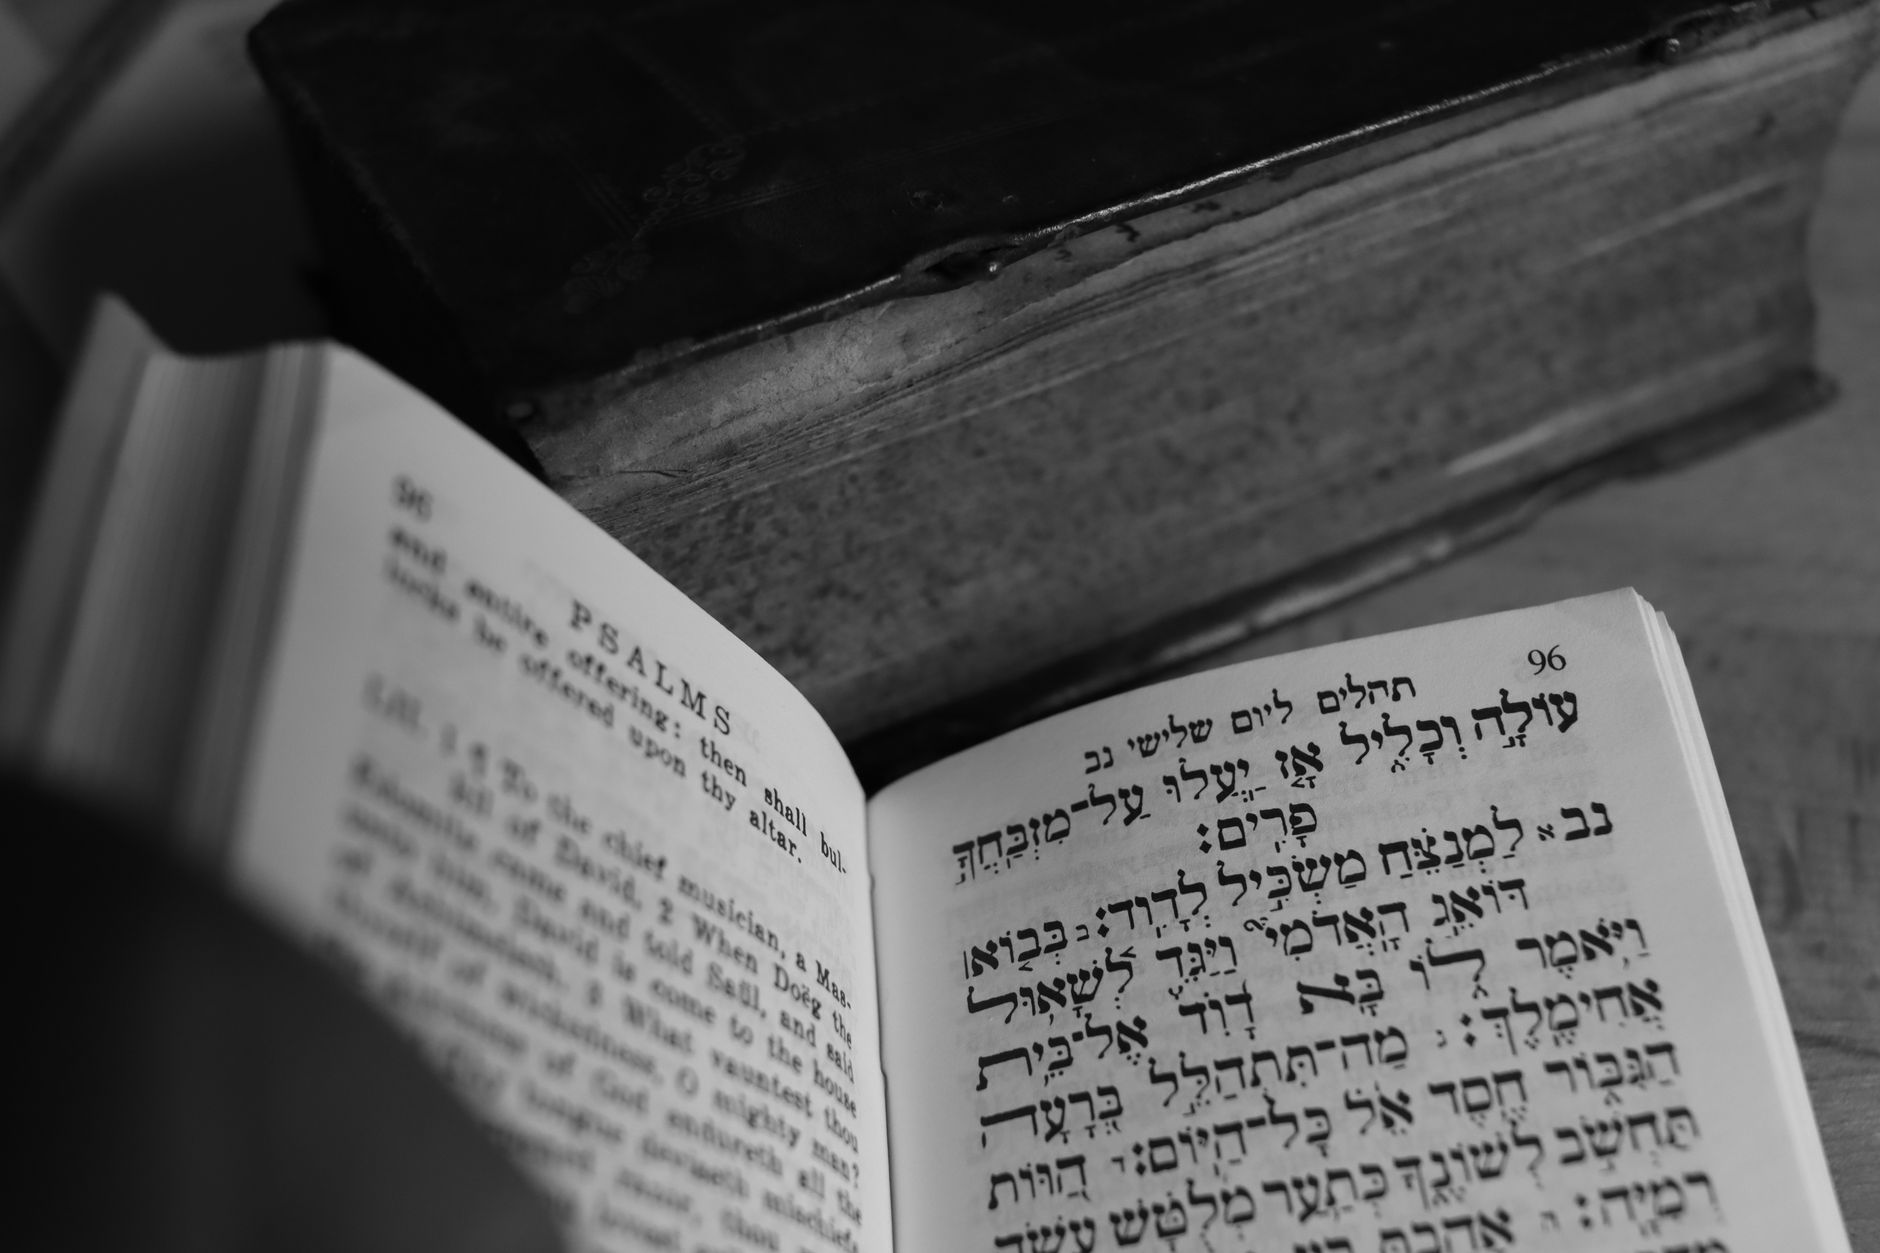 96
PSALMS
and entire offering: then shall bul-
locks be offered upon thy altar.
LII. 1 ¶ To the chief musician, a Mas-
kil of David. 2 When Doëg the
Edomite came and told Saül, and said
unto him, David is come to the house
of Ahimelech. 3 What vauntest thou
thyself of wickedness, O mighty man?
of God endureth all the
tongue deviseth mischiefs
thou
96
תהלים ליום שלישי נב
עוֹלָ֣ה וְכָלִ֑יל אָ֤ז יַעֲל֖וּ עַל־מִזְבַּחֲךָ֣
פָרִֽים׃
נב א לַמְנַצֵּ֗חַ מַשְׂכִּ֥יל לְדָוִֽד׃ ב בְּב֤וֹא׀
דּוֹאֵ֣ג הָאֲדֹמִי֮ וַיַּגֵּ֪ד לְשָׁ֫א֥וּל
וַיֹּ֥אמֶר ל֑וֹ בָּ֥א דָ֝וִ֗ד אֶל־בֵּ֥ית
אֲחִימֶֽלֶךְ׃ ג מַה־תִּתְהַלֵּ֣ל בְּ֭רָעָה
הַגִּבּ֑וֹר חֶ֥סֶד אֵ֝֗ל כָּל־הַיּֽוֹם׃ ד הַ֭וּוֹת
תַּחְשֹׁ֣ב לְשׁוֹנֶ֑ךָ כְּתַ֥עַר מְ֝לֻטָּ֗שׁ עֹשֵׂ֥ה
רְמִיָּֽה׃ ה אָהַ֣בְתָּ